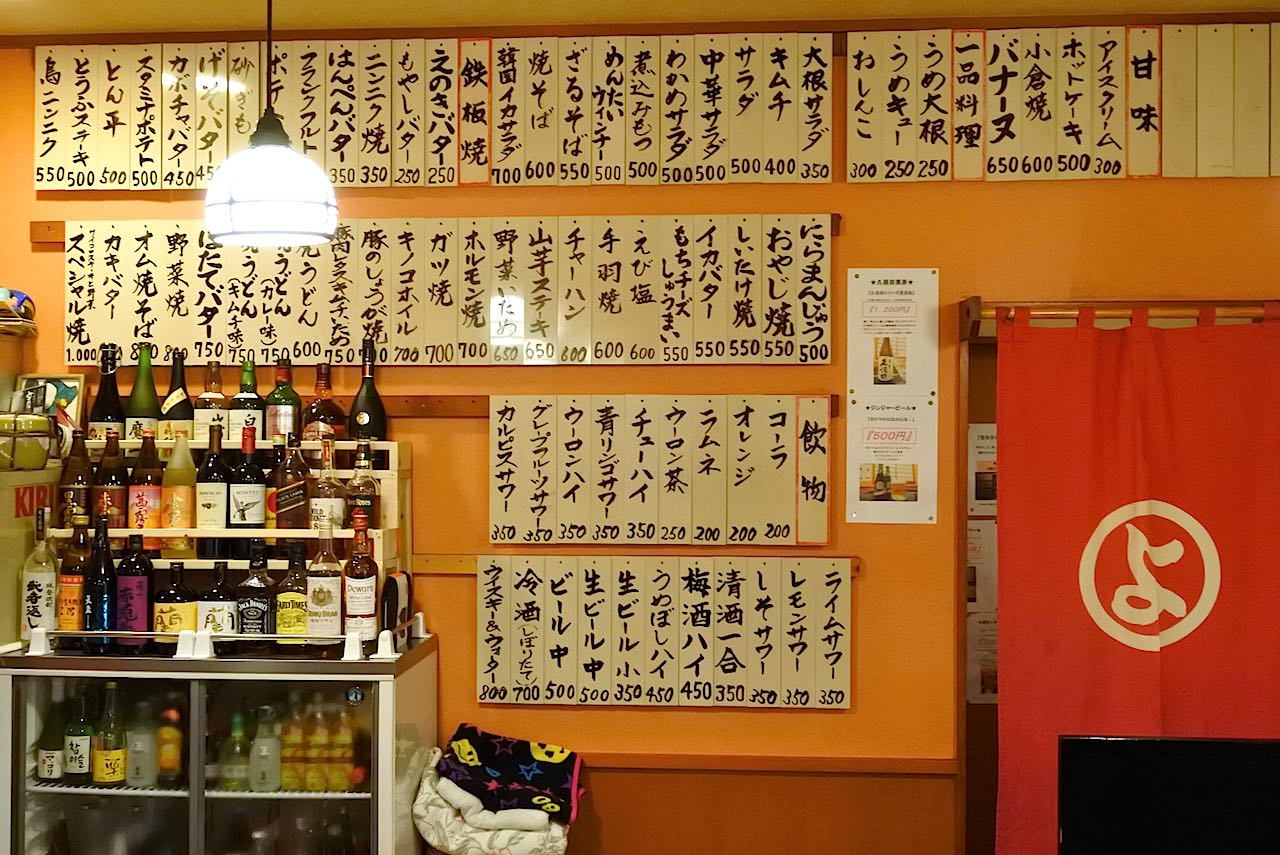 甘味
アイスクリーム 300
ホットケーキ 500
小倉焼 600
バナーヌ 650
一品料理
うめ大根 250
うめキュー 250
おしんこ 300
大根サラダ 350
キムチ 400
サラダ 500
中華サラダ 500
わかめサラダ 500
煮込みもつ 500
めんたいウィンナー 500
ざるそば 550
焼そば 600
韓国イカサラダ 700
鉄板焼
えのきバター 250
もやしバター 250
ニンニク焼 350
はんぺんバター 350
フランクフルト
ポテ
砂ぎも
げそバター 45
カボチャバター 450
スタミナポテト 500
とん平 500
とうふステーキ 500
鳥ニンニク 550
にらまんじゅう 500
おやじ焼 550
しいたけ焼 550
イカバター 550
もちチーズしゅうまい 550
えび塩 600
手羽焼 600
チャーハン 600
山芋ステーキ 650
野菜いため 650
ホルモン焼 700
ガツ焼 700
キノコホイル 700
豚のしょうが焼 700
豚肉とキムチいため 750
うどん 600
うどん(カレー味) 750
うどん(キムチ味) 750
ほたてバター 750
野菜焼
オム焼そば
カキバター
スペシャル焼 1.000
飲物
コーラ 200
オレンジ 200
ラムネ 200
ウーロン茶 250
チューハイ 350
青リンゴサワー 350
ウーロンハイ 350
グレープフルーツサワー 350
カルピスサワー 350
ライムサワー 350
レモンサワー 350
しそサワー 350
清酒一合 350
梅酒ハイ 450
うめぼしハイ 450
生ビール小 350
生ビール中 500
ビール中 500
冷酒(しぼりたて) 700
ウイスキー&ウォーター 800
★久保田萬寿★
『1,200円』
★ジンジャービール★
『500円』
よ
KIRI
JACK DANIEL'S
EARLY TIMES
Dewar's
MONTES
참이슬
マッコリ